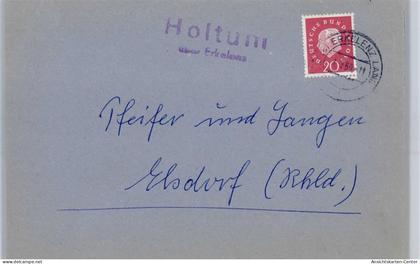 Holtum
über Erkelenz
DEUTSCHE BUNDESPOST
20
ERKELENZ LAND
Pfeifer und Langen
Elsdorf (Rhld.)
Ansichtskarten-Center